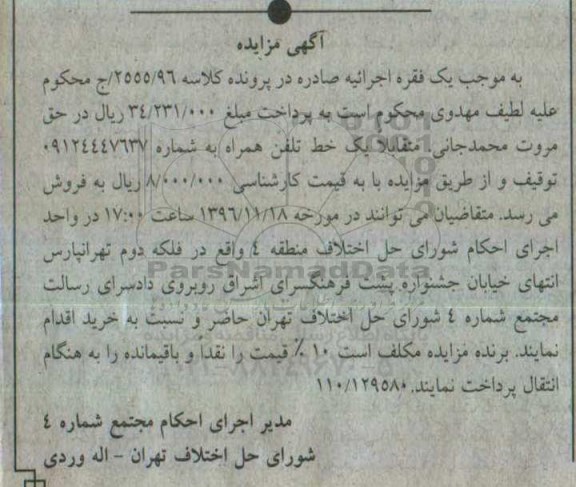 آگهی مزایده
به موجب یک فقره اجرائیه صادره در پرونده کلاسه ۲۵۵۵/۹۶/ج محکوم
علیه لطیف مهدوی محکوم است به پرداخت مبلغ ۳۴/۲۳۱/۰۰۰ ریال در حق
مروت محمدجانی متقابلا یک خط تلفن همراه به شماره ۰۹۱۲۴۴۴۷۶۳۷
توقیف و از طریق مزایده با به قیمت کارشناسی ۸/۰۰۰/۰۰۰ ریال به فروش
می رسد. متقاضیان می توانند در مورخه ۱۳۹۶/۱۱/۱۸ ساعت ۱۷:۰۰ در واحد
اجرای احکام شورای حل اختلاف منطقه ٤ واقع در فلکه دوم تهرانپارس
ParsNamadData
انتهای خیابان جشنواره پشت فرهنگسرای اشراق روبروی دادسرای رسالت
مجتمع شماره ٤ شورای حل اختلاف تهران حاضر و نسبت به خرید اقدام
نمایند. برنده مزایده مکلف است ۱۰ ٪ قیمت را نقدا و باقیمانده را به هنگام
انتقال پرداخت نمایند. ۱۱۰/۱۲۹۵۸۰
مدیر اجرای احکام مجتمع شماره ٤
شورای حل اختلاف تهران - اله وردی